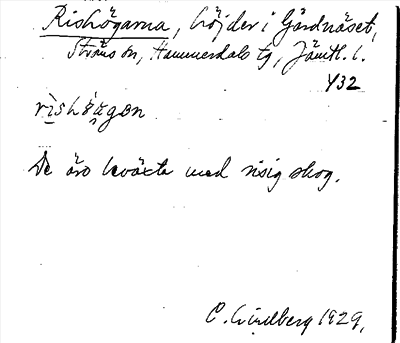 Rishögarna, höjder i Gårdnäset,
Ströms sn, Hammerdals tg, Jämtl. l.
Y32
rishögɵn
De äro beväxta med risig skog.
C. Lindberg 1929.